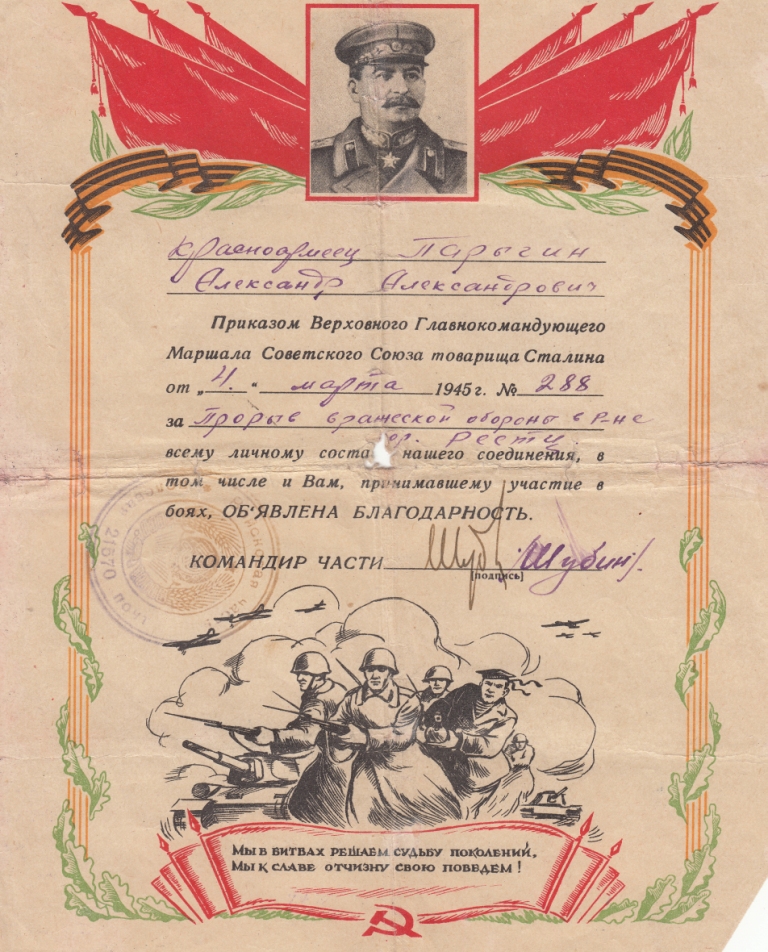 Красноармеец Парыгин
Александр Александрович
Приказом Верховного Главнокомандующего
Маршала Советского Союза товарища Сталина
от „4.“ марта 1945 г. № 288
за Прорыв вражеской обороны в р-не
гор. Регги
всему личному соста нашего соединения, в
том числе и Вам, принимавшему участие в
боях, ОБ'ЯВЛЕНА БЛАГОДАРНОСТЬ.
КОМАНДИР ЧАСТИ Шуб (Шубин).
[подпись]
21570
МЫ В БИТВАХ РЕШАЕМ СУДЬБУ ПОКОЛЕНИЙ,
МЫ К СЛАВЕ ОТЧИЗНУ СВОЮ ПОВЕДЕМ!